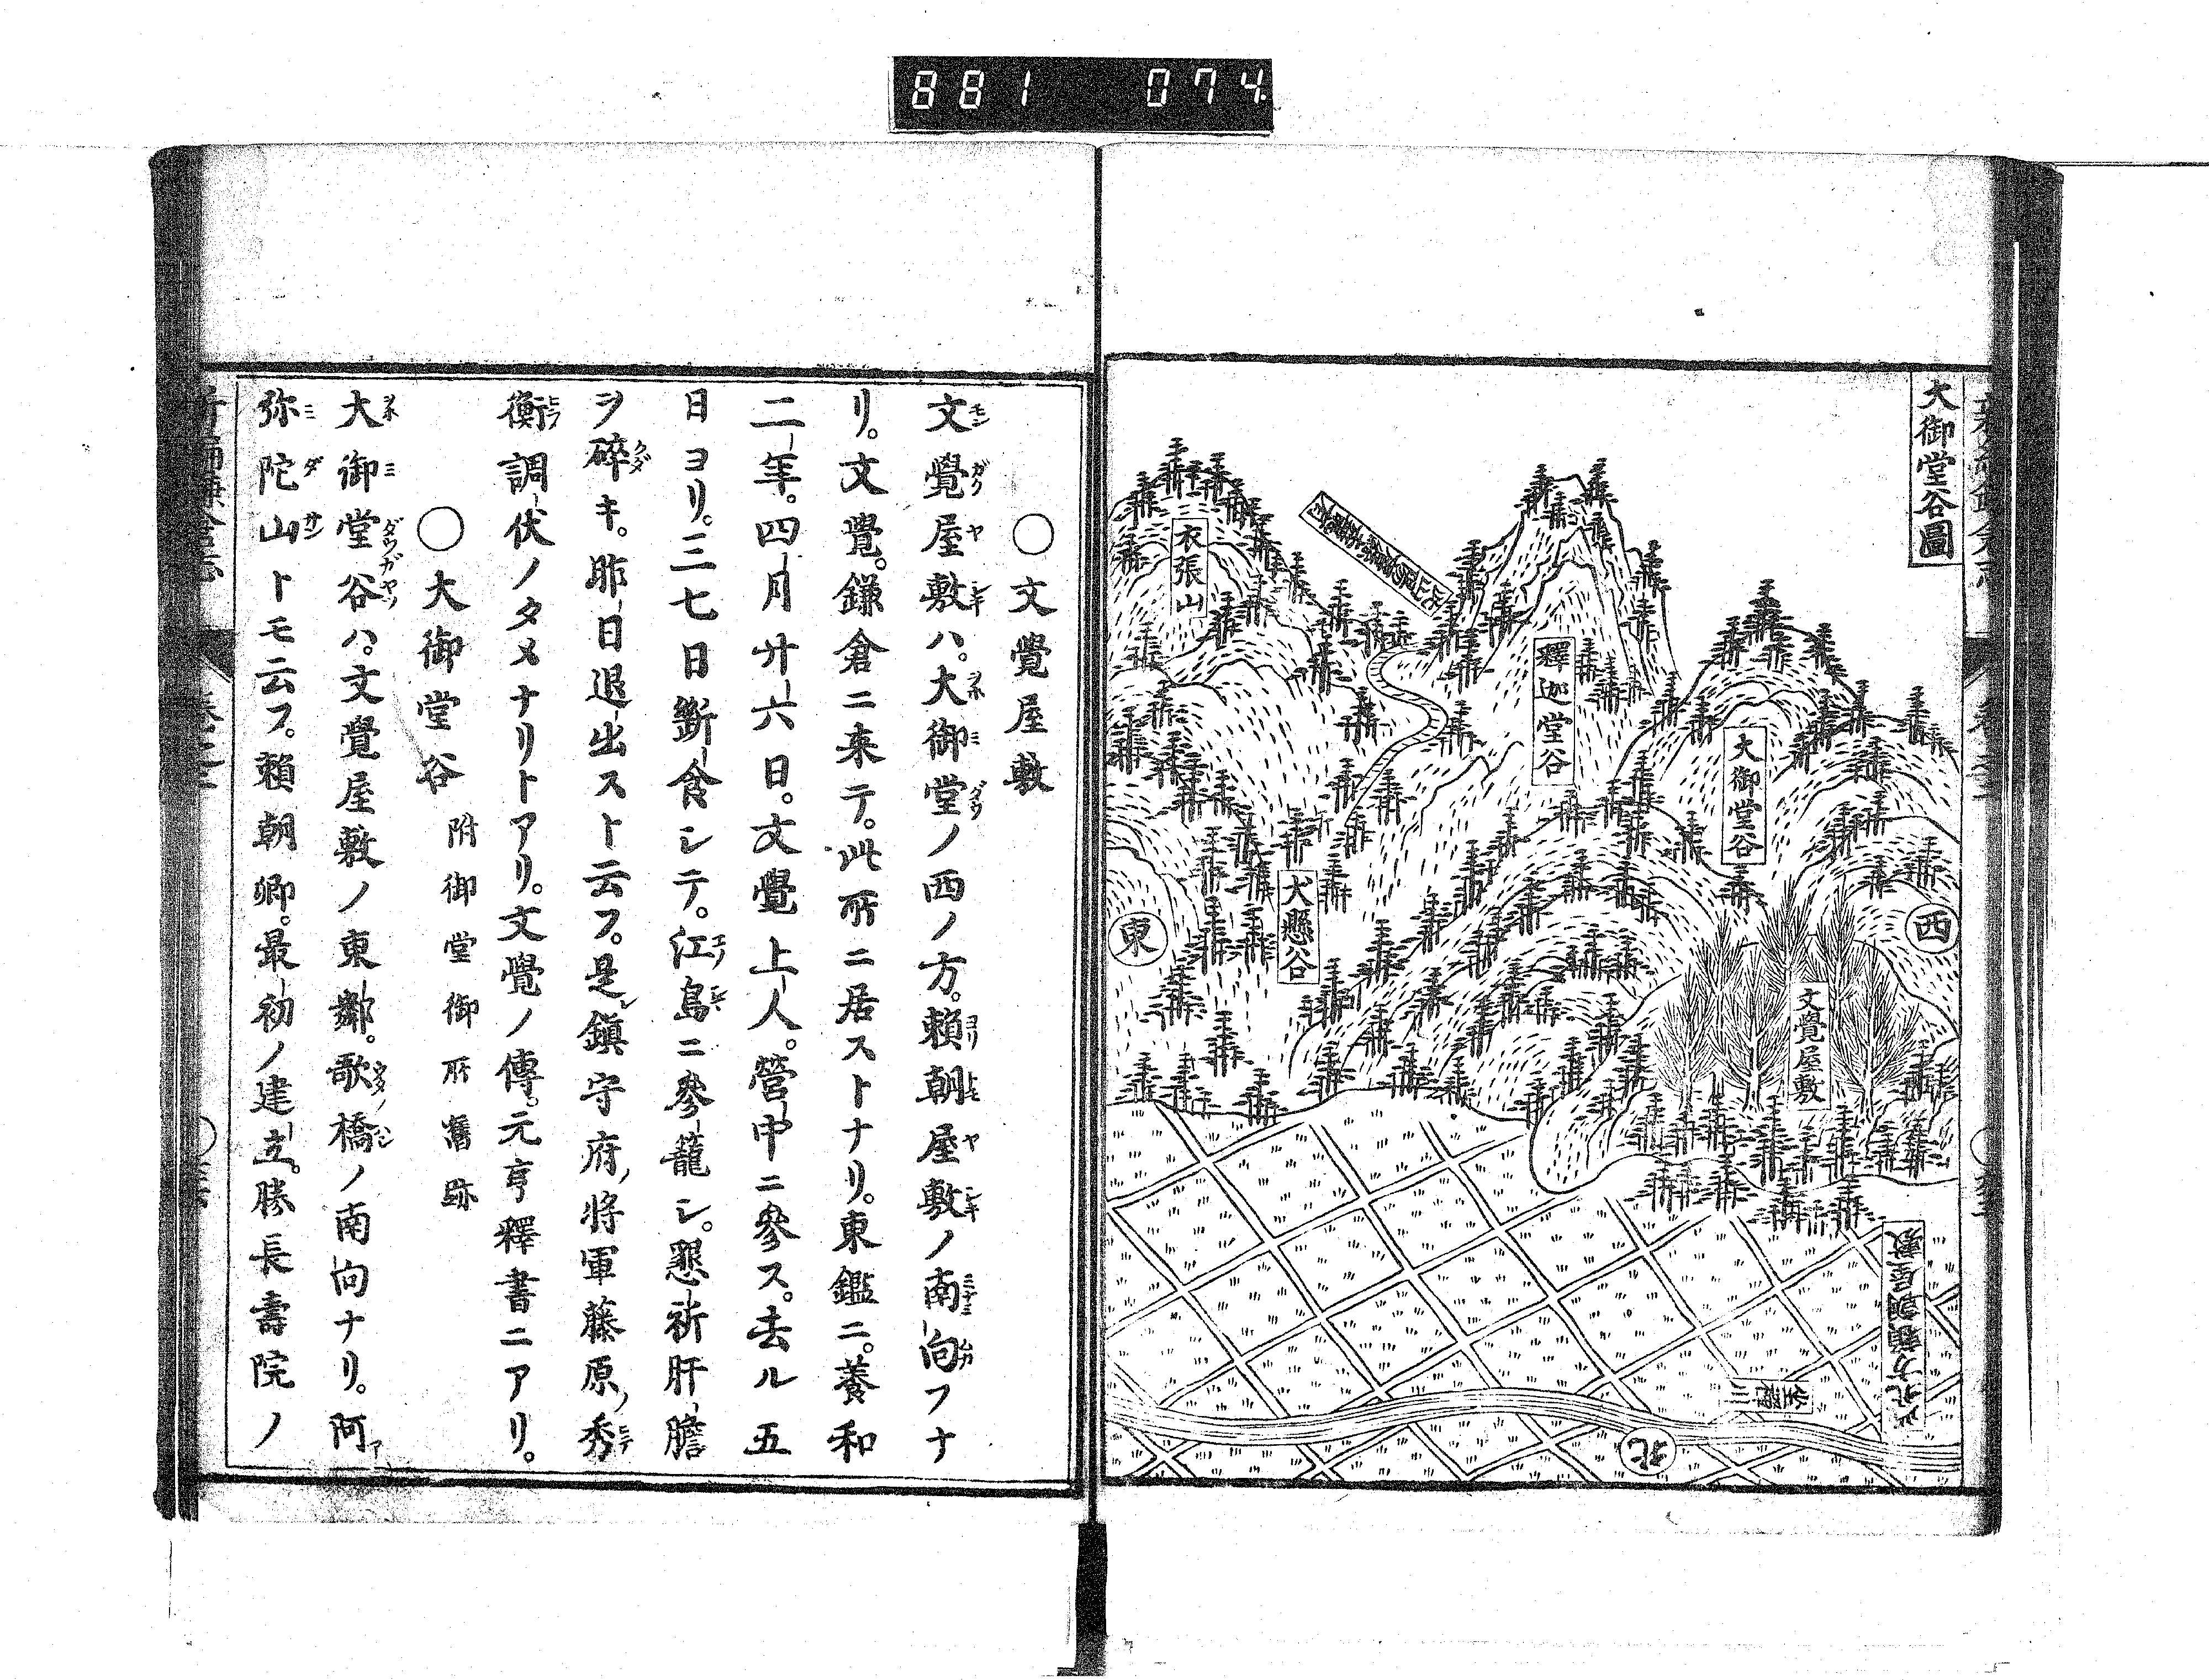 881 074
大御堂谷圖
西
大御堂谷
文覺屋敷
釋迦堂谷
犬懸谷
衣張山
東
北
此北方賴朝屋敷
○文覺屋敷
文覺屋敷ハ。大御堂ノ西ノ方。賴朝屋敷ノ南向フナ
リ。文覺。鎌倉ニ來テ。此所ニ居ストナリ。東鑑ニ。養和
二年。四月廿六日。文覺上人。營中ニ參ス。去ル五
日ヨリ。三七日斷食シテ。江島ニ參籠シ。懇祈肝膽
ヲ碎キ。昨日退出スト云フ。是レ鎮守府ノ將軍藤原ノ秀
衡調伏ノタメナリトアリ。文覺ノ傳。元亨釋書ニアリ。
○大御堂谷 附御堂御所舊跡
大御堂谷ハ。文覺屋敷ノ東鄰。歌橋ノ南向ナリ。阿
弥陀山トモ云フ。賴朝卿。最初ノ建立。勝長壽院ノ